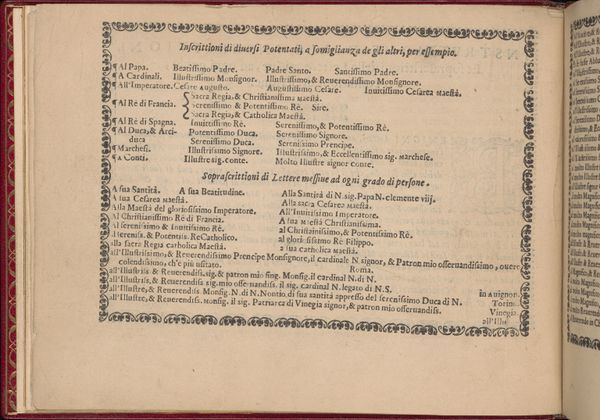 Inscrittioni di diuersi Potentati, a somiglianza de gli altri, per essempio.
¶ Al Papa. Beatissimo Padre. Padre Santo. Santissimo Padre.
¶ A Cardinali. Illustrissimo Monsignor. Illustrissimo, & Reuerendissimo Monsignore.
¶ All'Imperatore. Cesare Augusto. Augustissimo Cesare. Inuitissimo Cesarea Maestà.
Sacra Regia, & Christianissima Maestà.
¶ Al Rè di Francia. Serenissimo & Potentissimo Rè. Sire.
Sacra Regia, & Catholica Maestà.
¶ Al Rè di Spagna. Inuitissimo Rè. Serenissimo, & Potentissimo Rè.
¶ Al Duca, & Arci- Potentissimo Duca. Serenissimo Signore.
duca Serenissimo Duca. Serenissimo Prencipe.
¶ Marchesi. Illustrissimo Signore. Illustrissimo, & Eccellentissimo sig. Marchese.
¶ a Conti. Illustre sig. conte. Molto Illustre signor conte.
Soprascrittioni di Lettere messiue ad ogni grado di persone.
A sua Santità. A sua Beatitudine. Alla Santità di N. sig. Papa N. clemente viij.
A sua Cesarea Maestà. Alla sacra Cesarea Maestà.
Alla Maestà del gloriosissimo Imperatore. All'Inuitissimo Imperatore.
Al Christianissimo Rè di Francia. A sua Maestà Christianissima.
Al sereniss. & Inuitissimo Rè. al Christianissimo, & Potentissimo Rè.
al sereniss. & Potentiss. Re Catholico. al gloriosissimo Rè Filippo.
alla sacra Regia catholica Maestà. a sua catholica Maestà.
all'Illustrissimo, & Reuerendissimo Prencipe Monsignore, il cardinale N. signor, & Patron mio osseruandissimo, ouero
colendissimo, ch'è più usitato. Roma.
all'Illustriss. & Reuerendiss. sig. & patron mio sing. Monsig. il cardinal N. di N.
all'Illustriss. & Reuerendiss. sig. mio osseruandiss. il sig. cardinal N. legato di N. S. in auignon.
all'Illustre, & Reuerendiss. Monsig. N. di N. Nontio di sua santità appresso del serenissimo Duca di N. Torino.
all'Illustre, & Reuerendiss. Monsig. il sig. Patriarca di Vinegia signor, & patron mio osseruandiss. Vinegia.
all'Illu